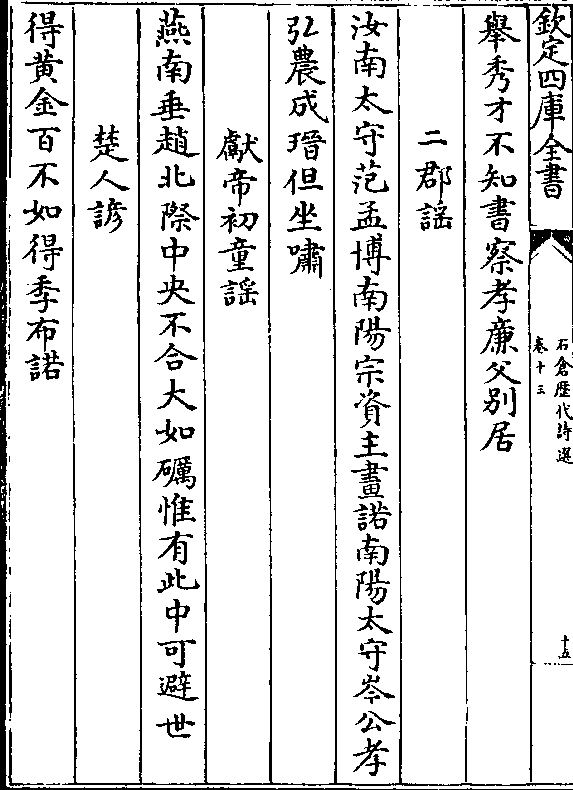 欽定四庫全書
石倉歴代詩選
卷十三
十五
舉秀才不知書察孝廉父别居
二郡謡
汝南太守范孟博南陽宗資主畫諾南陽太守岑公孝
弘農成瑨但坐嘯
獻帝初童謡
燕南垂趙北際中央不合大如礪惟有此中可避世
楚人諺
得黄金百不如得季布諾